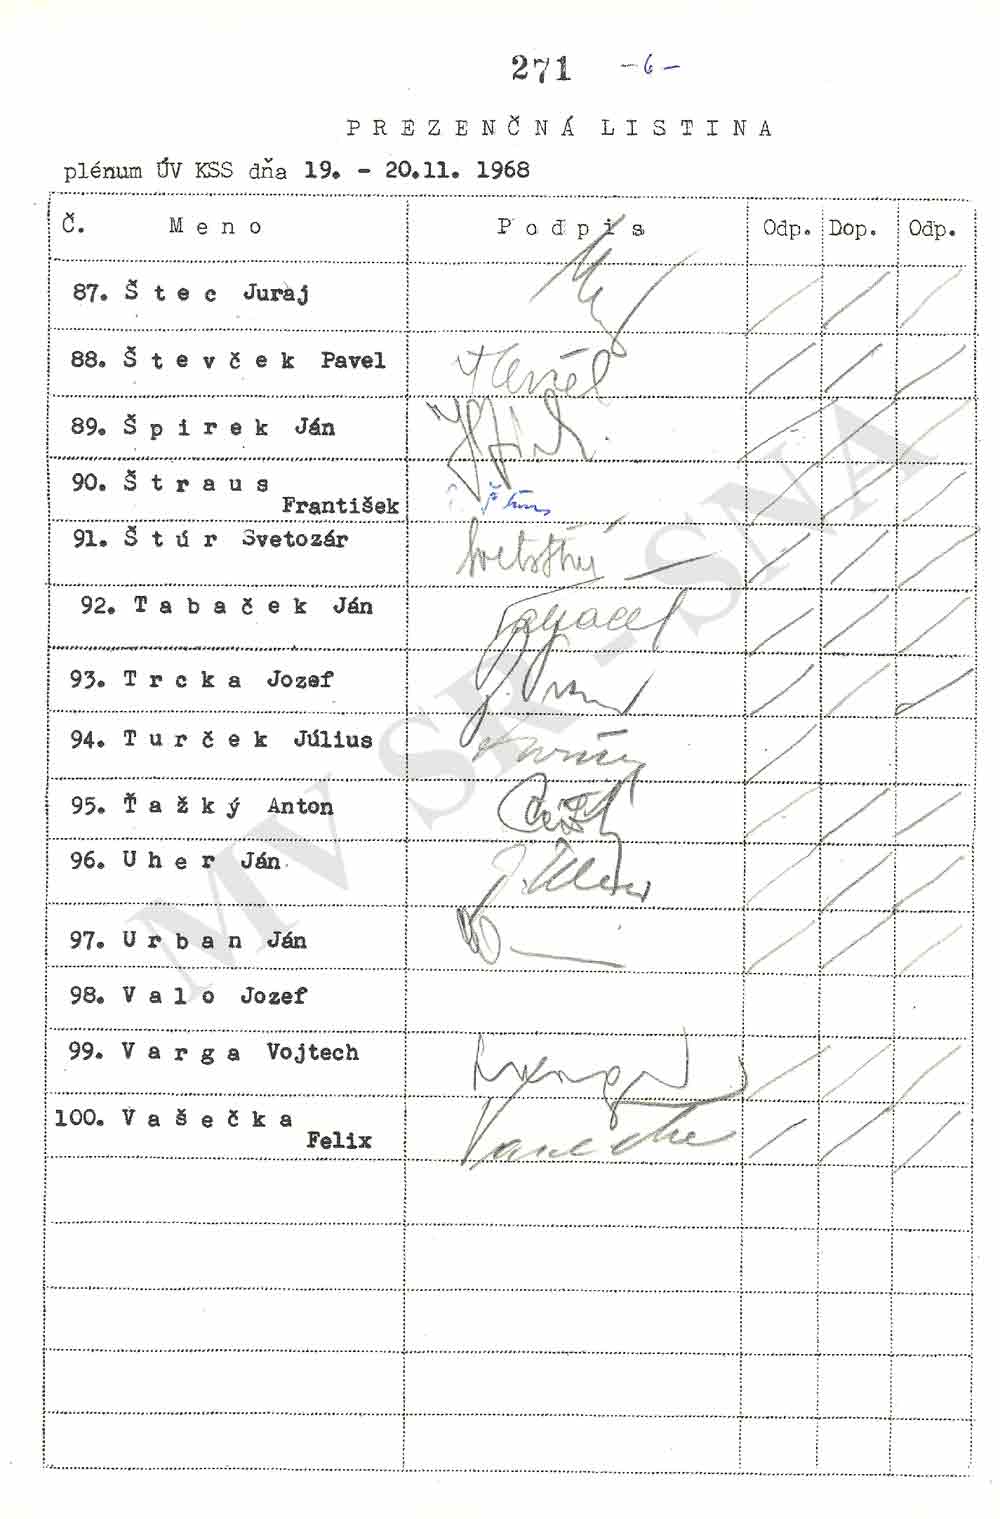 271 -6-
PREZENČNÁ LISTINA
plénum ÚV KSS dňa 19. - 20.11. 1968
Č. Meno Podpis Odp. Dop. Odp.
87. Štec Juraj
88. Števček Pavel
89. Špirek Ján
90. Štraus
František
91. Štúr Svetozár
92. Tabaček Ján
93. Trcka Jozef
94. Turček Július
95. Ťažký Anton
96. Uher Ján
97. Urban Ján
98. Valo Jozef
99. Varga Vojtech
100. Vašečka
Felix
MV SR - SNA